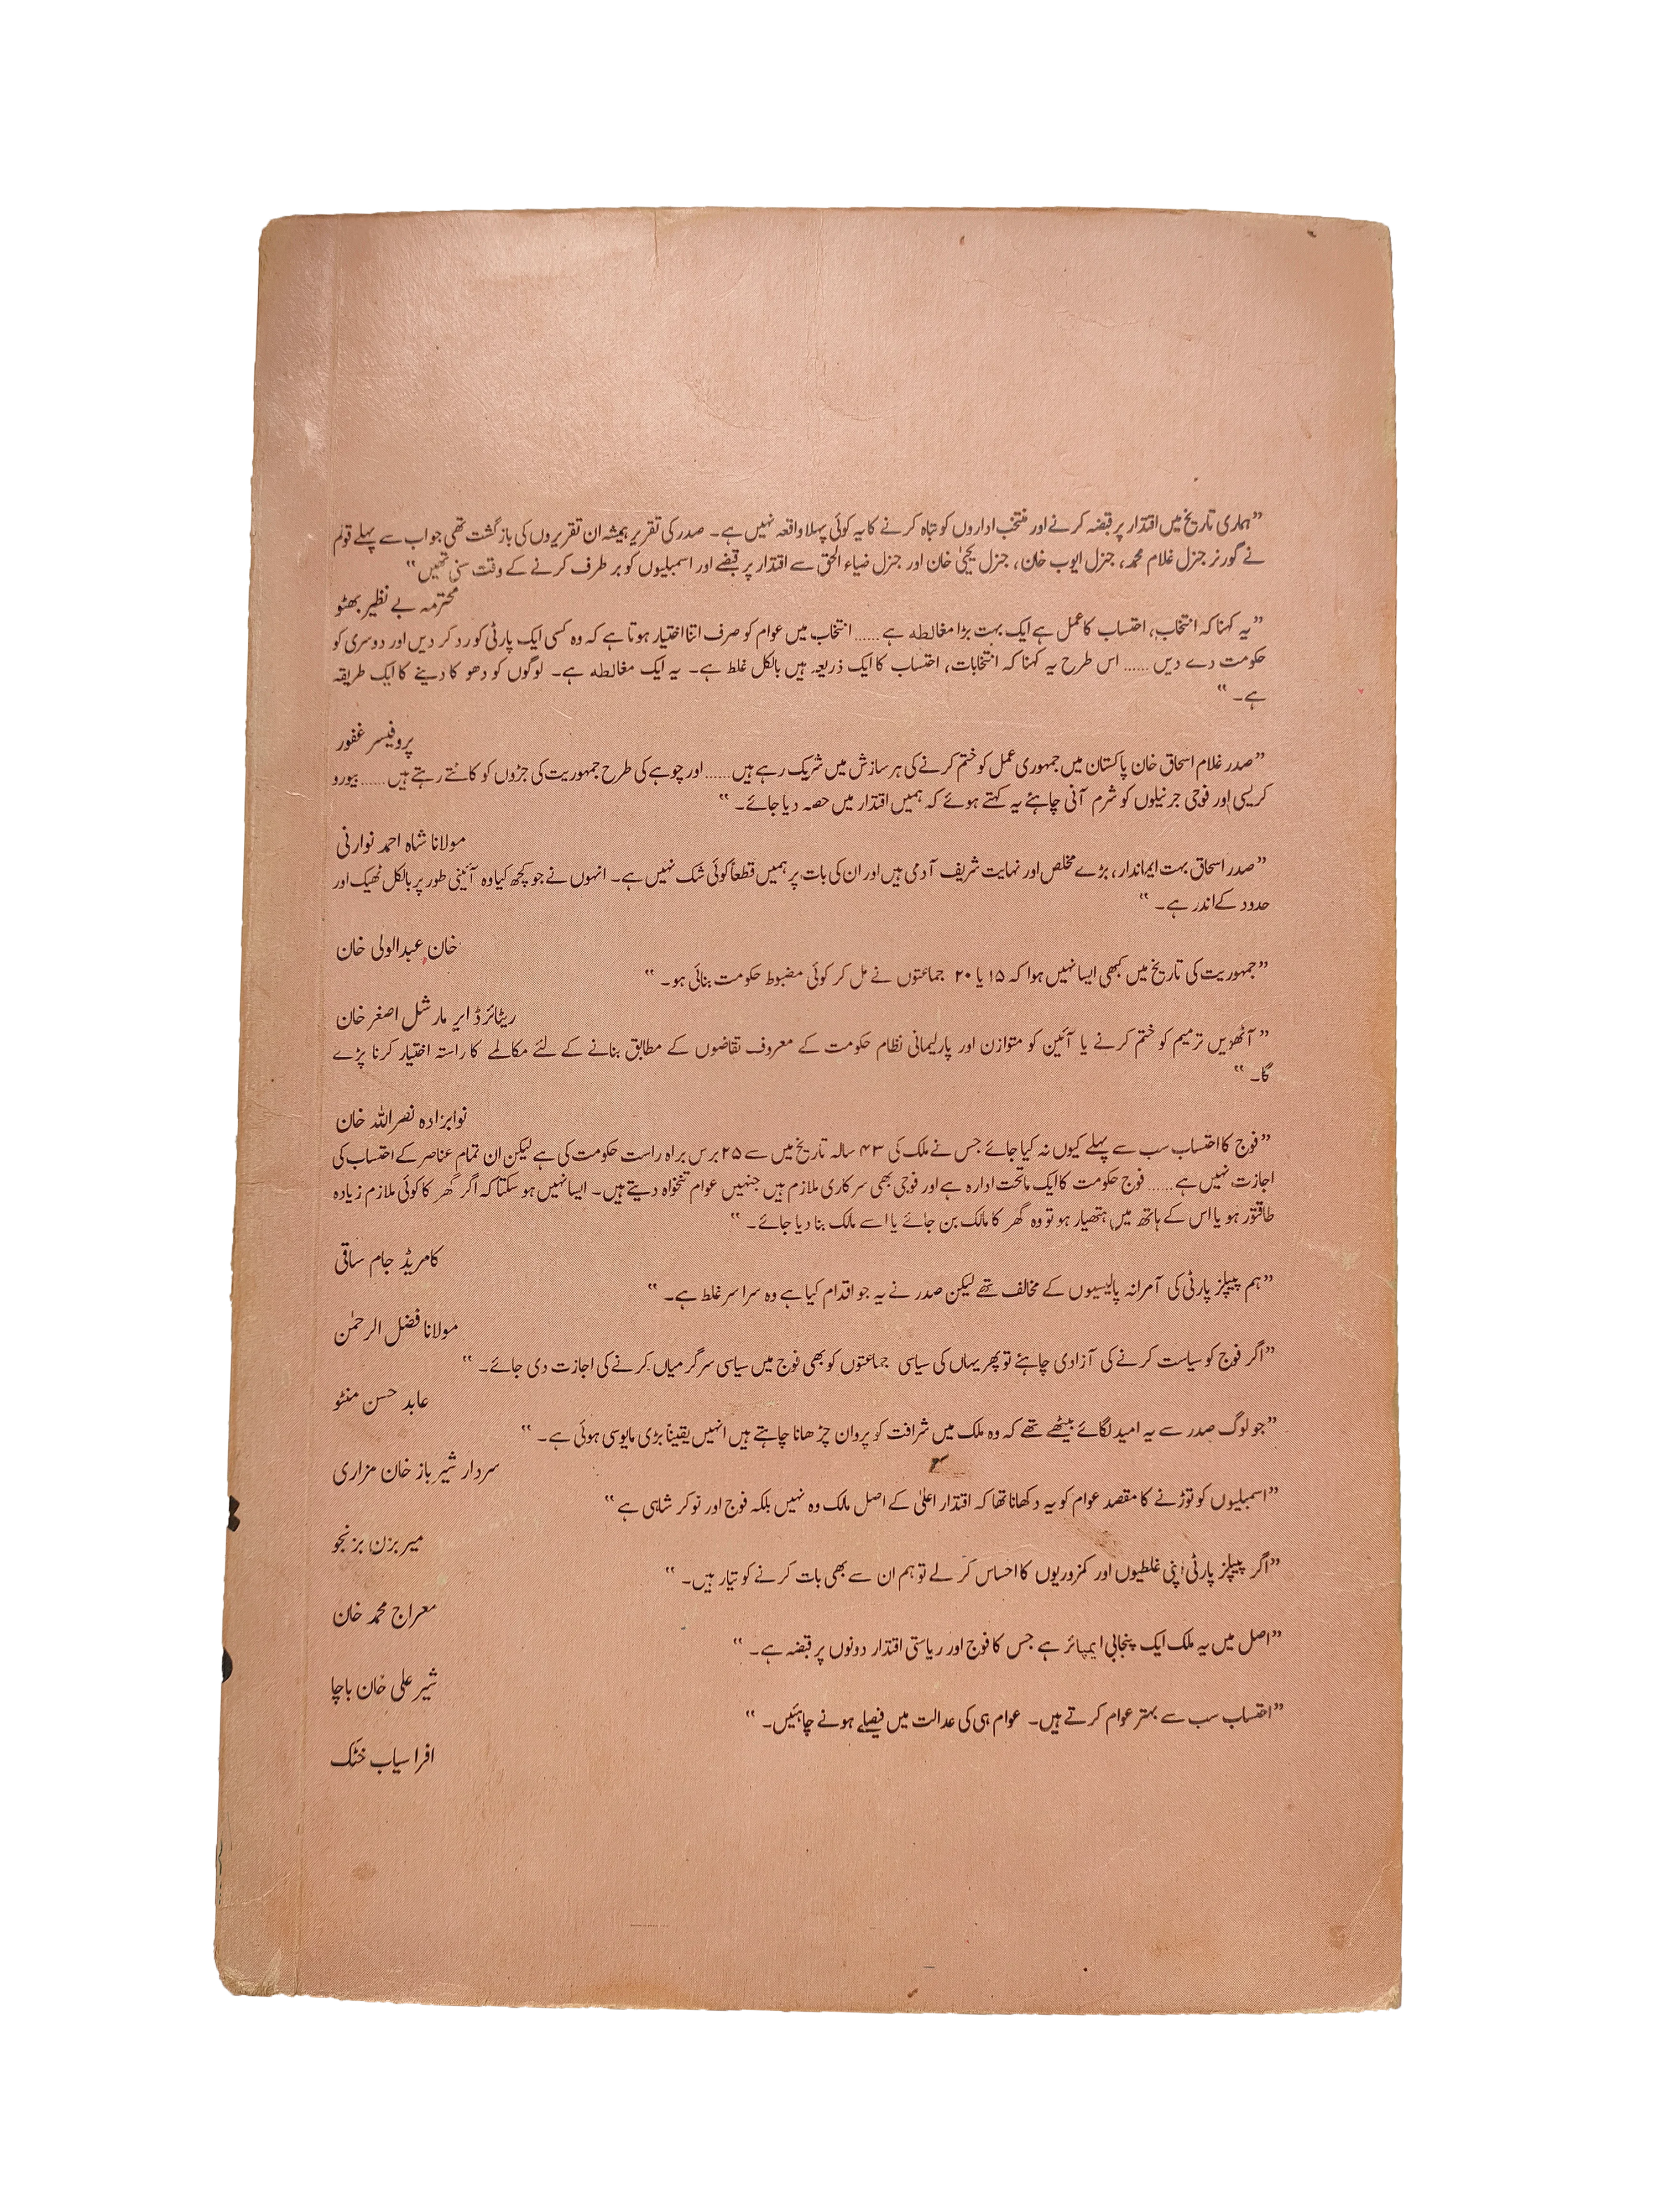 ”ہماری تاریخ میں اقتدار پر قبضہ کرنے اور منتخب اداروں کو تباہ کرنے کا یہ کوئی پہلا واقعہ نہیں ہے۔ صدر کی تقریر ہمیشہ ان تقریروں کی بازگشت تھی جو اب سے پہلے قوم
نے گورنر جنرل غلام محمد، جنرل ایوب خان، جنرل یحییٰ خان اور جنرل ضیاء الحق سے اقتدار پر قبضے اور اسمبلیوں کو برطرف کرنے کے وقت سنی تھیں“
محترمہ بے نظیر بھٹو
”یہ کہنا کہ انتخاب، احتساب کا عمل ہے ایک بہت بڑا مغالطہ ہے ...... انتخاب میں عوام کو صرف اتنا اختیار ہوتا ہے کہ وہ کسی ایک پارٹی کو رد کر دیں اور دوسری کو
حکومت دے دیں ...... اس طرح یہ کہنا کہ انتخابات، احتساب کا ایک ذریعہ ہیں بالکل غلط ہے۔ یہ ایک مغالطہ ہے۔ لوگوں کو دھوکا دینے کا ایک طریقہ
ہے۔“
پروفیسر غفور
”صدر غلام اسحاق خان پاکستان میں جمہوری عمل کو ختم کرنے کی ہر سازش میں شریک رہے ہیں ...... اور چوہے کی طرح جمہوریت کی جڑوں کو کاٹتے رہتے ہیں ...... بیورو
کریسی اور فوجی جرنیلوں کو شرم آنی چاہئے یہ کہتے ہوئے کہ ہمیں اقتدار میں حصہ دیا جائے۔“
مولانا شاہ احمد نورانی
”صدر اسحاق بہت ایماندار، بڑے مخلص اور نہایت شریف آدمی ہیں اور ان کی بات پر ہمیں قطعاً کوئی شک نہیں ہے۔ انہوں نے جو کچھ کیا وہ آئینی طور پر بالکل ٹھیک اور
حدود کے اندر ہے۔“
خان عبدالولی خان
”جمہوریت کی تاریخ میں کبھی ایسا نہیں ہوا کہ ۱۵ یا ۲۰ جماعتوں نے مل کر کوئی مضبوط حکومت بنائی ہو۔“
ریٹائرڈ ایر مارشل اصغر خان
”آٹھویں ترمیم کو ختم کرنے یا آئین کو متوازن اور پارلیمانی نظام حکومت کے معروف تقاضوں کے مطابق بنانے کے لئے مکالمے کا راستہ اختیار کرنا پڑے
گا۔“
نوابزادہ نصراللہ خان
”فوج کا احتساب سب سے پہلے کیوں نہ کیا جائے جس نے ملک کی ۴۳ سالہ تاریخ میں سے ۲۵ برس براہ راست حکومت کی ہے لیکن ان تمام عناصر کے احتساب کی
اجازت نہیں ہے ...... فوج حکومت کا ایک ماتحت ادارہ ہے اور فوجی بھی سرکاری ملازم ہیں جنہیں عوام تنخواہ دیتے ہیں۔ ایسا نہیں ہو سکتا کہ اگر گھر کا کوئی ملازم زیادہ
طاقتور ہو یا اس کے ہاتھ میں ہتھیار ہو تو وہ گھر کا مالک بن جائے یا اسے مالک بنا دیا جائے۔“
کامریڈ جام ساقی
”ہم پیپلز پارٹی کی آمرانہ پالیسیوں کے مخالف تھے لیکن صدر نے یہ جو اقدام کیا ہے وہ سراسر غلط ہے۔“
مولانا فضل الرحمٰن
”اگر فوج کو سیاست کرنے کی آزادی چاہئے تو پھر یہاں کی سیاسی جماعتوں کو بھی فوج میں سیاسی سرگرمیاں کرنے کی اجازت دی جائے۔“
عابد حسن منٹو
”جو لوگ صدر سے یہ امید لگائے بیٹھے تھے کہ وہ ملک میں شرافت کو پروان چڑھانا چاہتے ہیں انہیں یقیناً بڑی مایوسی ہوئی ہے۔“
سردار شیر باز خان مزاری
”اسمبلیوں کو توڑنے کا مقصد عوام کو یہ دکھانا تھا کہ اقتدار اعلیٰ کے اصل مالک وہ نہیں بلکہ فوج اور نوکر شاہی ہے“
میر بزن بزنجو
”اگر پیپلز پارٹی اپنی غلطیوں اور کمزوریوں کا احساس کر لے تو ہم ان سے بھی بات کرنے کو تیار ہیں۔“
معراج محمد خان
”اصل میں یہ ملک ایک پنجابی ایمپائر ہے جس کا فوج اور ریاستی اقتدار دونوں پر قبضہ ہے۔“
شیر علی خان باچا
”احتساب سب سے بہتر عوام کرتے ہیں۔ عوام ہی کی عدالت میں فیصلے ہونے چاہئیں۔“
افراسیاب خٹک